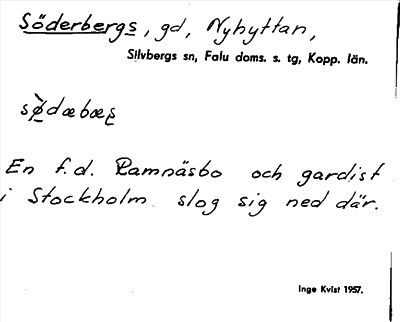 Söderbergs, gd, Nyhyttan,
Silvbergs sn, Falu doms. s. tg, Kopp. län.
sø̀dæbæs
En f.d. Ramnäsbo och gardist
i Stockholm slog sig ned där.
Inge Kvist 1957.